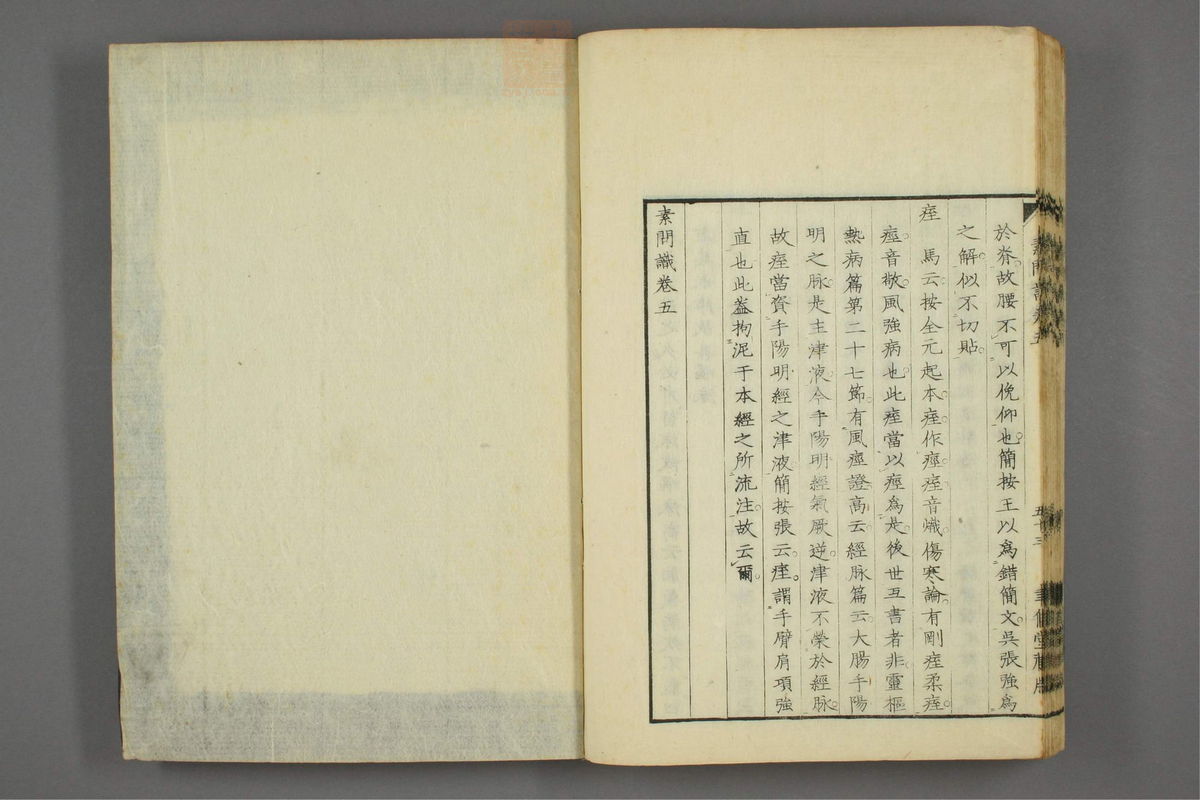 於脊故腰不可以俛仰也簡按王以為錯簡文吳張強為
之解似不切貼
痓　馬云按全元起本痓作痙痓音熾傷寒論有剛痓柔痓
痙音敬風強病也此痓當以痙為是後世互書者非靈樞
熱病篇第二十七節有風痙證高云經脉篇云大腸手陽
明之脉是主津液今手陽明經氣厥逆津液不榮於經脉
故痓當資手陽明經之津液簡按張云痓謂手臂肩項強
直也此蓋拘泥于本經之所流注故云爾
素問識卷五